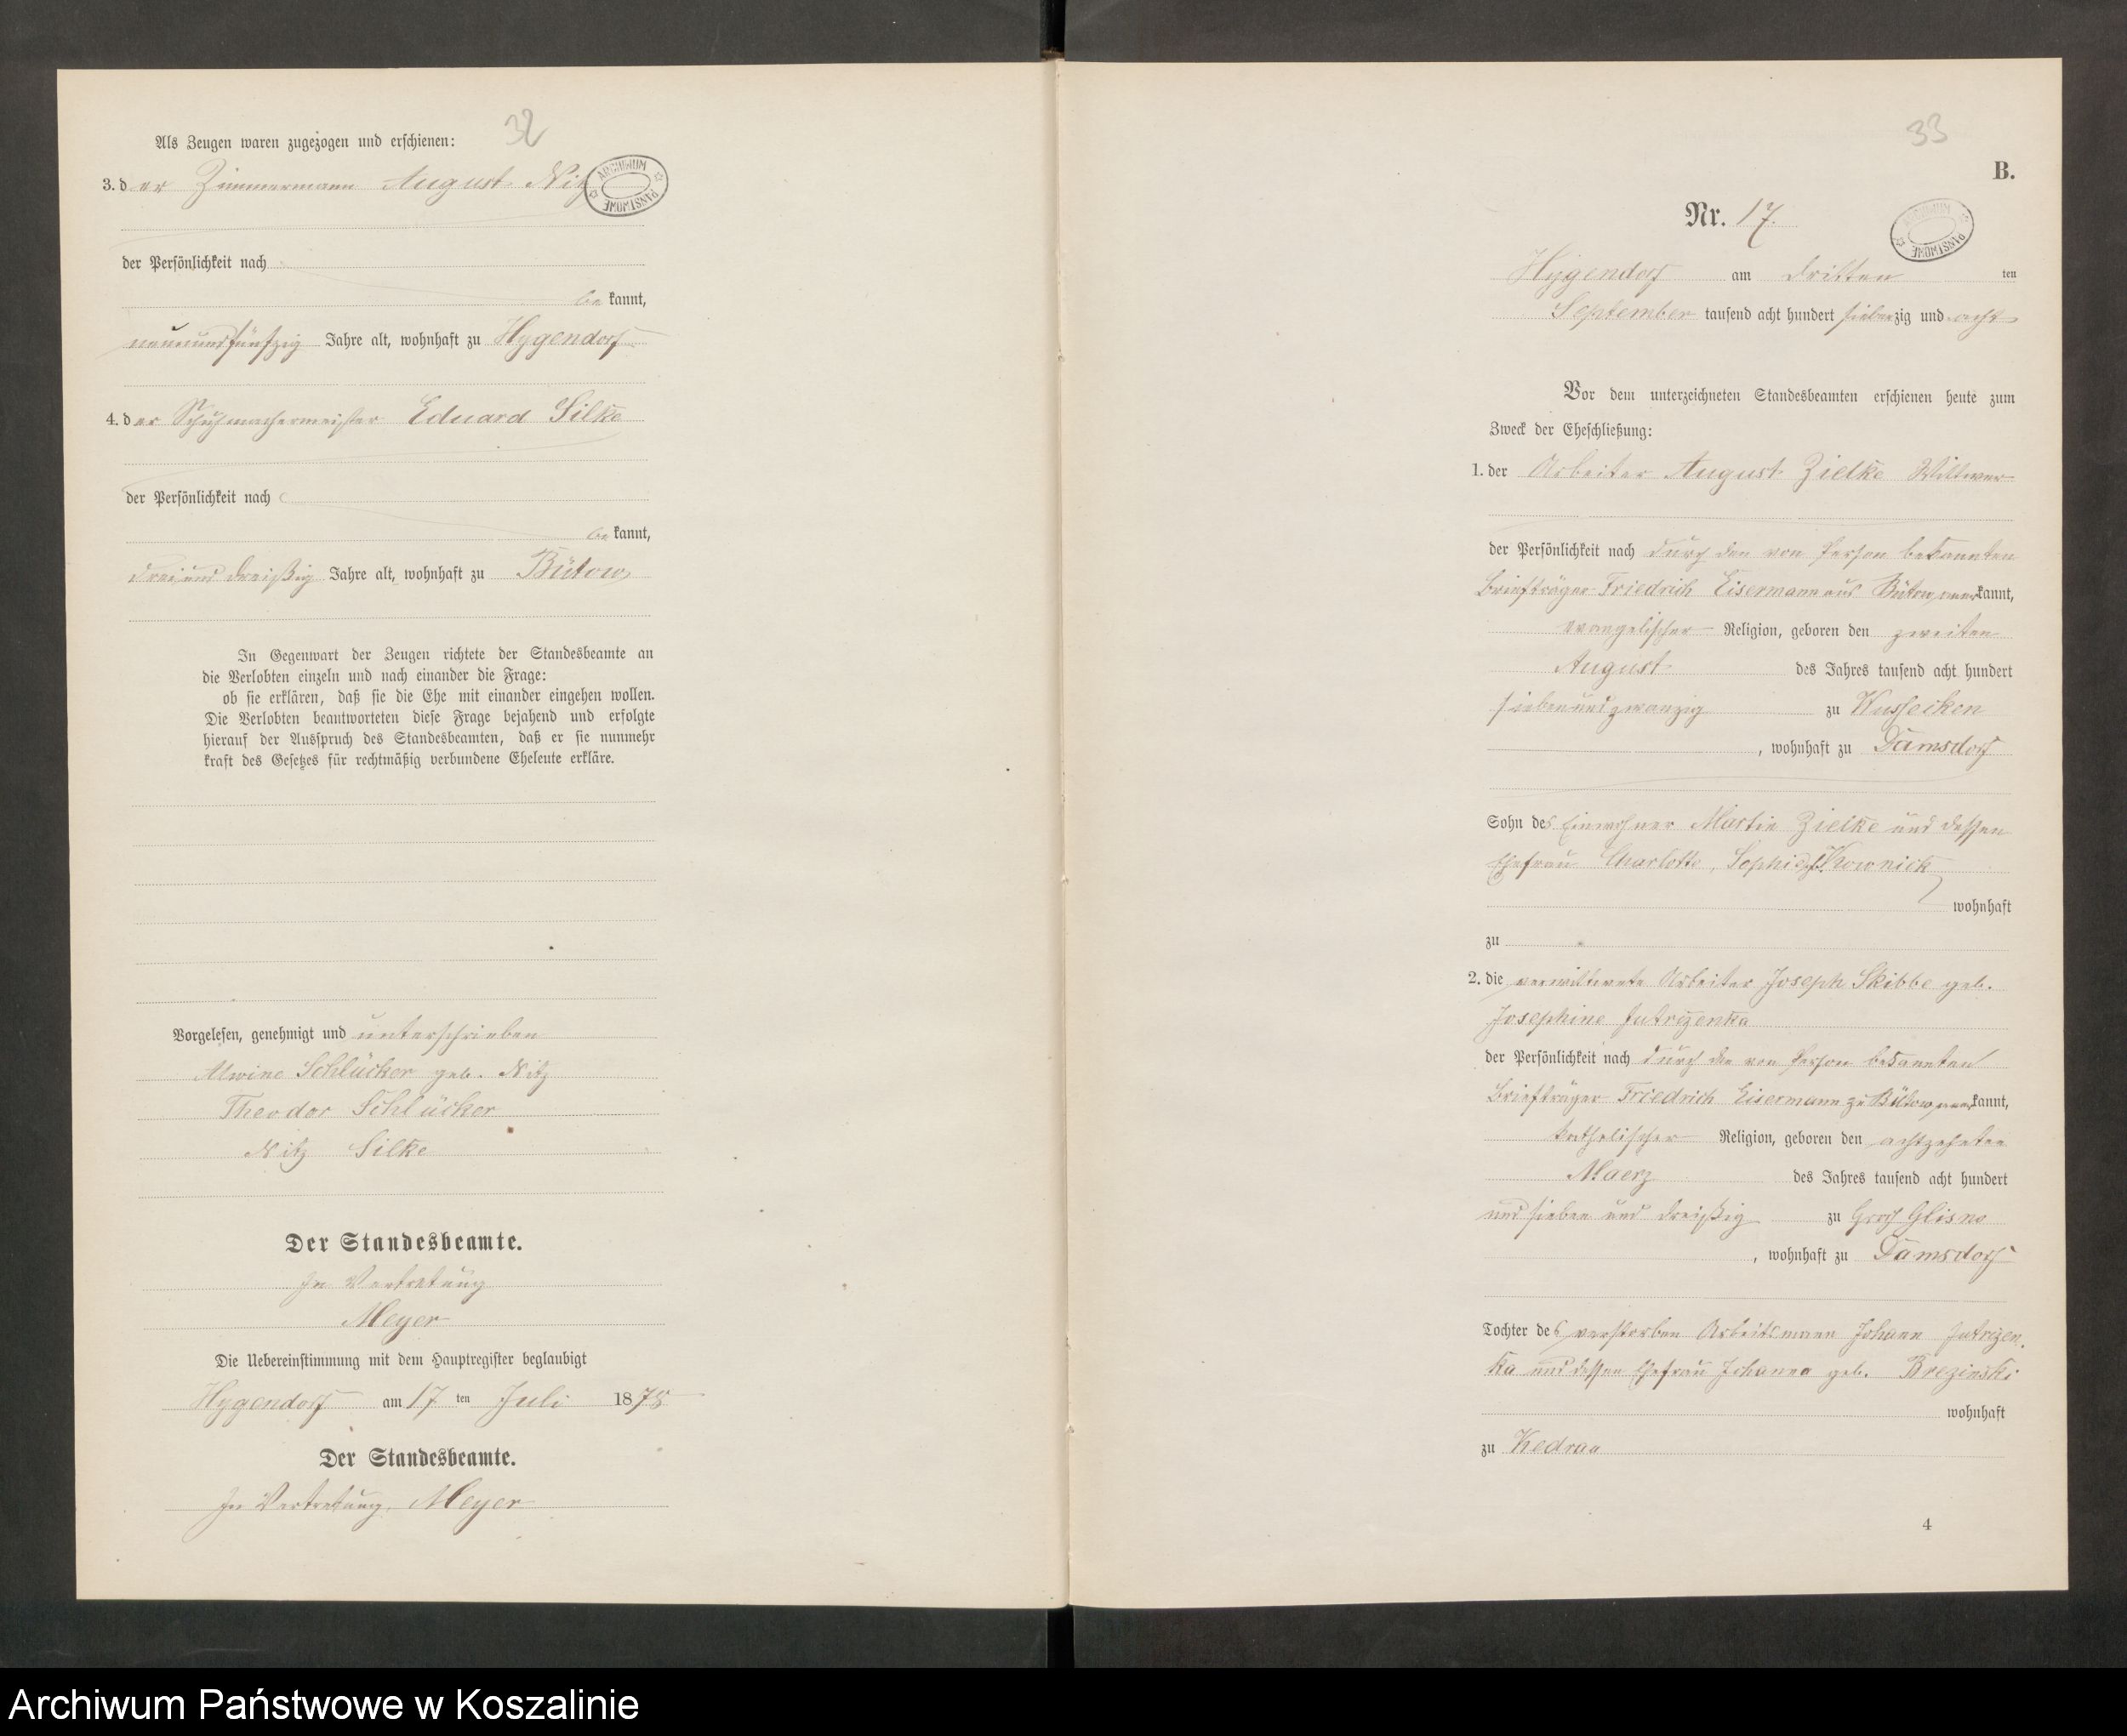 32
Als Zeugen waren zugezogen und erschienen:
3. der Zimmermann August Nitz
ARCHIWUM PAŃSTWOWE
der Persönlichkeit nach
be kannt,
neunundfünfzig Jahre alt, wohnhaft zu Hygendorf
4. der Schuhmachermeister Eduard Silke
der Persönlichkeit nach
be kannt,
dreiund dreißig Jahre alt, wohnhaft zu Bütow
In Gegenwart der Zeugen richtete der Standesbeamte an
die Verlobten einzeln und nach einander die Frage:
ob sie erklären, daß sie die Ehe mit einander eingehen wollen.
Die Verlobten beantworteten diese Frage bejahend und erfolgte
hierauf der Ausspruch des Standesbeamten, daß er sie nunmehr
kraft des Gesetzes für rechtmäßig verbundene Eheleute erkläre.
Vorgelesen, genehmigt und unterschrieben
Alwine Schlücker geb. Nitz
Theodor Schlücker
Nitz Silke
Der Standesbeamte.
In Vertretung
Meyer
Die Uebereinstimmung mit dem Hauptregister beglaubigt
Hygendorf am 17 ten Juli 1878
Der Standesbeamte.
In Vertretung, Meyer
33
B.
Nr. 17.
ARCHIWUM PAŃSTWOWE
Hygendorf am dritten ten
September tausend acht hundert siebenzig und acht
Vor dem unterzeichneten Standesbeamten erschienen heute zum
Zweck der Eheschließung:
1. der Arbeiter August Zielke Wittwer
der Persönlichkeit nach durch den von Person bekannten
Briefträger Friedrich Eisermann aus Bütow anerkannt,
evangelischer Religion, geboren den zweiten
August des Jahres tausend acht hundert
siebenundzwanzig zu Kusseiken
, wohnhaft zu Damsdorf
Sohn des Einwohner Martin Zielke und dessen
Ehefrau Charlotte, Sophie geb. Kownick
wohnhaft
zu
2. die verwittwete Arbeiter Joseph Skibbe geb.
Josephine Jutrizenka
der Persönlichkeit nach durch den von Person bekannten
Briefträger Friedrich Eisermann zu Bütow anerkannt,
katholischer Religion, geboren den achtzehnten
Maerz des Jahres tausend acht hundert
und sieben und dreißig zu Groß Glisno
, wohnhaft zu Damsdorf
Tochter des verstorben Arbeitsmann Johann Jutrizen
ka und dessen Ehefrau Johanna geb. Brezinski
wohnhaft
zu Kedrau
4
Archiwum Państwowe w Koszalinie